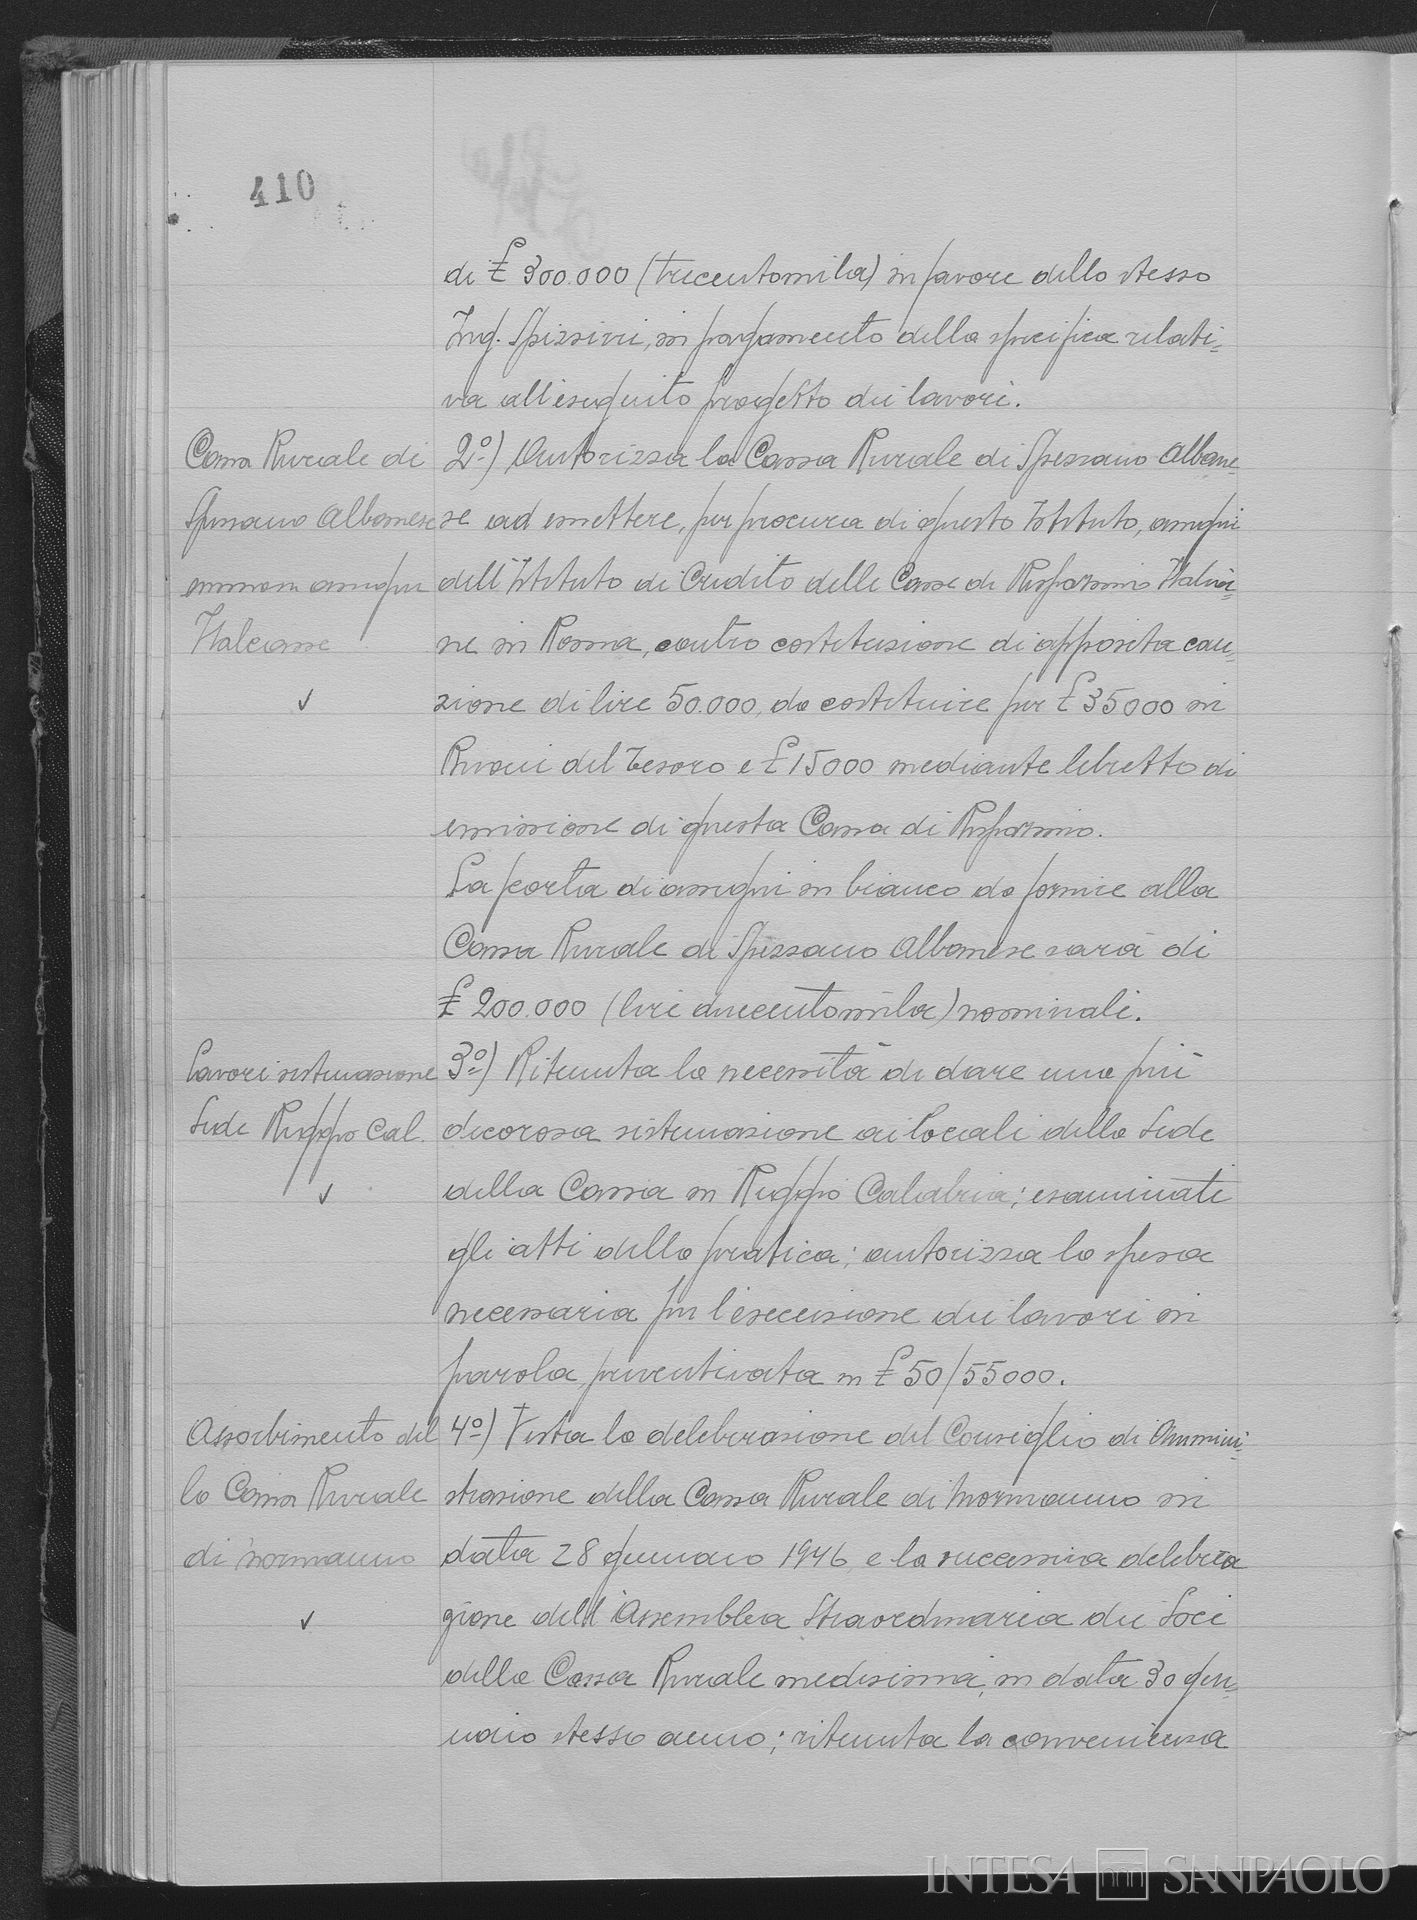 410
di £ 300.000 (trecentomila) in favore dello stesso
Ing. Spizzirri, in pagamento della specifica relati=
va all'eseguito progetto dei lavori.
Cassa Rurale di
Spezzano Albanese
emissione assegni
Italcasse
✓
2º) Autorizza la Cassa Rurale di Spezzano Albane=
se ad emettere, per procura di questo Istituto, assegni
dell'Istituto di Credito delle Casse di Risparmio Italia=
ne in Roma, contro costituzione di apposita cau=
zione di lire 50.000, da costituire per £ 35000 in
Buoni del Tesoro e £ 15000 mediante libretto di
emissione di questa Cassa di Risparmio.
La scorta di assegni in bianco da fornire alla
Cassa Rurale di Spezzano Albanese sarà di
£ 200.000 (lire duecentomila) nominali.
Lavori sistemazione
Sede Reggio Cal.
✓
3º) Ritenuta la necessità di dare una più
decorosa sistemazione ai locali della Sede
della Cassa in Reggio Calabria; esaminati
gli atti della pratica; autorizza la spesa
necessaria per l'esecuzione dei lavori in
parola, preventivata in £ 50/55000.
Assorbimento del
la Cassa Rurale
di Mormanno
✓
4º) Vista la deliberazione del Consiglio di Ammini=
strazione della Cassa Rurale di Mormanno in
data 28 gennaio 1946, e la successiva delibera
zione dell'Assemblea Straordinaria dei Soci
della Cassa Rurale medesima, in data 30 gen=
naio stesso anno; ritenuta la convenienza
INTESA SANPAOLO